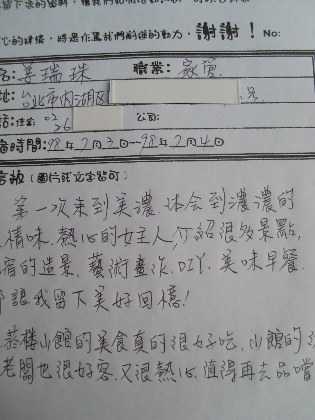 留下來的資料,
心的建議, 將是作為我們前進的動力, 謝謝! No:
名: 姜瑞珠 職業: 家管
址: 台北市內湖區 號
話:住家: 02 公司:
36
時間: 98年2月3日--98年2月4日
(圖片或文字皆可)
第一次来到美濃.体会到濃濃的
人情味.熱心的女主人,介紹很多景點,
宿的造景、藝術畫作、DIY、美味早餐.
都讓我留下美好回憶!
菸樓小館的美食真的很好吃,小館的
老闆也很好客,又很熱心,值得再去品嚐